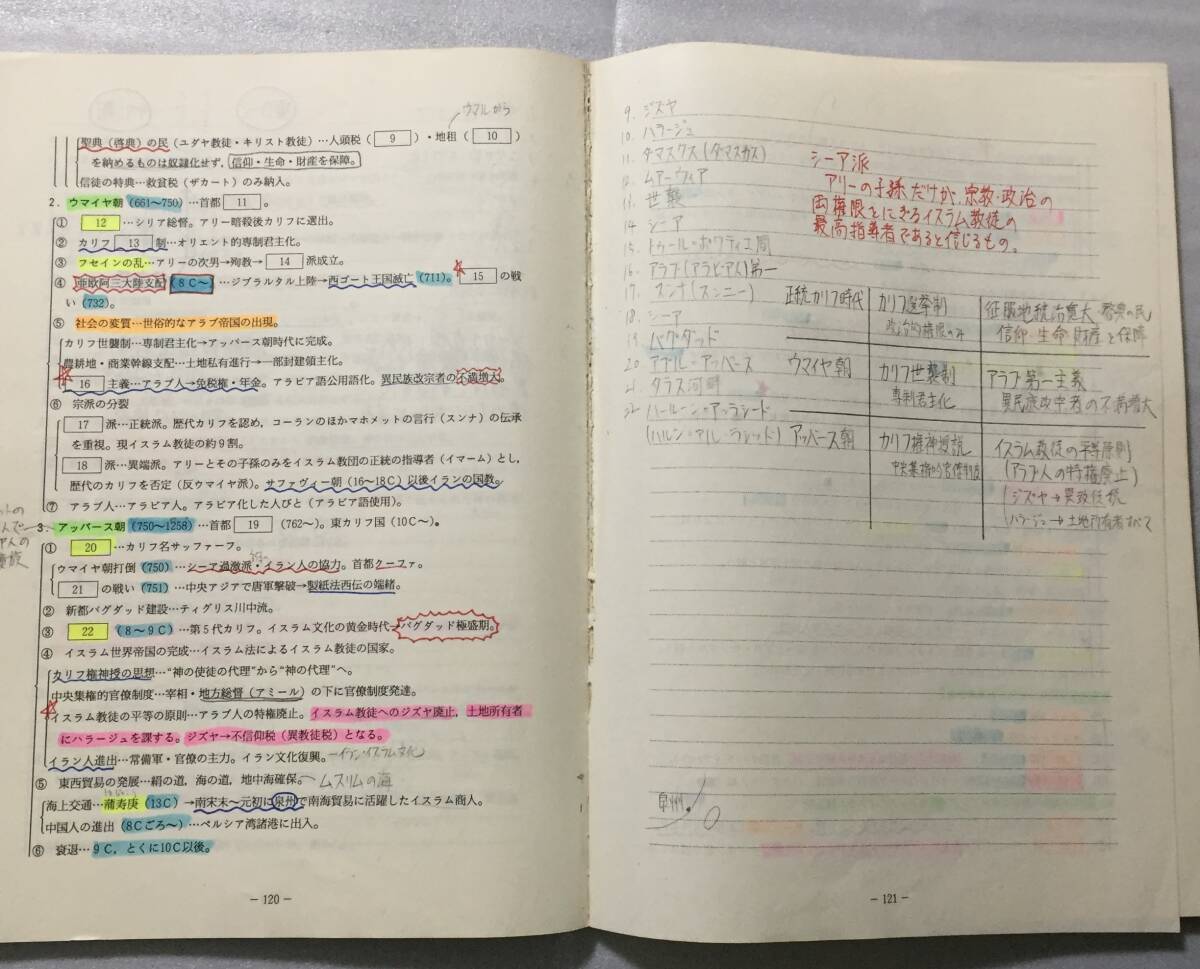 ウマルから
聖典（啓典）の民（ユダヤ教徒・キリスト教徒）…人頭税（ 9 ）・地租（ 10 ）
を納めるものは奴隷化せず，信仰・生命・財産を保障。
信徒の特典…救貧税（ザカート）のみ納入。
2．ウマイヤ朝（661～750）…首都 11 。
① 12 …シリア総督。アリー暗殺後カリフに選出。
② カリフ 13 制…オリエント的専制君主化。
③ フセインの乱…アリーの次男→殉教→ 14 派成立。
④ 亜欧阿三大陸支配（8C～）…ジブラルタル上陸→西ゴート王国滅亡（711）。 15 の戦
い（732）。
⑤ 社会の変質…世俗的なアラブ帝国の出現。
カリフ世襲制…専制君主化→アッバース朝時代に完成。
農耕地・商業幹線支配…土地私有進行→一部封建領主化。
16 主義…アラブ人→免税権・年金。アラビア語公用語化。異民族改宗者の不満増大。
⑥ 宗派の分裂
17 派…正統派。歴代カリフを認め，コーランのほかマホメットの言行（スンナ）の伝承
を重視。現イスラム教徒の約9割。
18 派…異端派。アリーとその子孫のみをイスラム教団の正統の指導者（イマーム）とし，
歴代のカリフを否定（反ウマイヤ派）。サファヴィー朝（16～18C）以後イランの国教。
⑦ アラブ人…アラビア人。アラビア化した人びと（アラビア語使用）。
3．アッバース朝（750～1258）…首都 19 （762～）。東カリフ国（10C～）。
① 20 …カリフ名サッファーフ。
ウマイヤ朝打倒（750）…シーア過激派・イラン人の協力。首都クーファ。
21 の戦い（751）…中央アジアで唐軍撃破→製紙法西伝の端緒。
② 新都バグダッド建設…ティグリス川中流。
③ 22 （8～9C）…第5代カリフ。イスラム文化の黄金時代→バグダッド極盛期。
④ イスラム世界帝国の完成…イスラム法によるイスラム教徒の国家。
カリフ権神授の思想…“神の使徒の代理”から“神の代理”へ。
中央集権的官僚制度…宰相・地方総督（アミール）の下に官僚制度発達。
イスラム教徒の平等の原則…アラブ人の特権廃止。イスラム教徒へのジズヤ廃止，土地所有者
にハラージュを課する。ジズヤ→不信仰税（異教徒税）となる。
イラン人進出…常備軍・官僚の主力。イラン文化復興。─イラン・イスラム文化
⑤ 東西貿易の発展…絹の道，海の道，地中海確保。ムスリムの海
海上交通…蒲寿庚（13C）→南宋末～元初に泉州で南海貿易に活躍したイスラム商人。
中国人の進出（8Cごろ～）…ペルシア湾諸港に出入。
⑥ 衰退…9C，とくに10C以後。
― 120 ―
9. ジズヤ
10. ハラージュ
11. ダマスクス(ダマスカス)
12. ムアーウィア
13. 世襲
14 シーア
15. トゥール=ポワティエ間
16. アラブ(アラビア人)第一
17. スンナ(スンニー)
18. シーア
19. バグダッド
20 アブル=アッバース
21. タラス河畔
22 ハールーン=アッラシード
(ハルン=アル=ラシッド)
シーア派
アリーの子孫だけが、宗教・政治の
両権限をにぎるイスラム教徒の
最高指導者であると信じるもの。
正統カリフ時代 カリフ選挙制 征服地統治寛大 啓典の民
政治的権限のみ 信仰・生命・財産を保障
ウマイヤ朝 カリフ世襲制 アラブ第一主義
専制君主化 異民族改宗者の不満増大
アッバース朝 カリフ権神授説 イスラム教徒の平等原則
中央集権的官僚制度 (アラブ人の特権廃止)
ジズヤ→異教徒税
ハラージュ→土地所有者すべて
泉州
― 121 ―